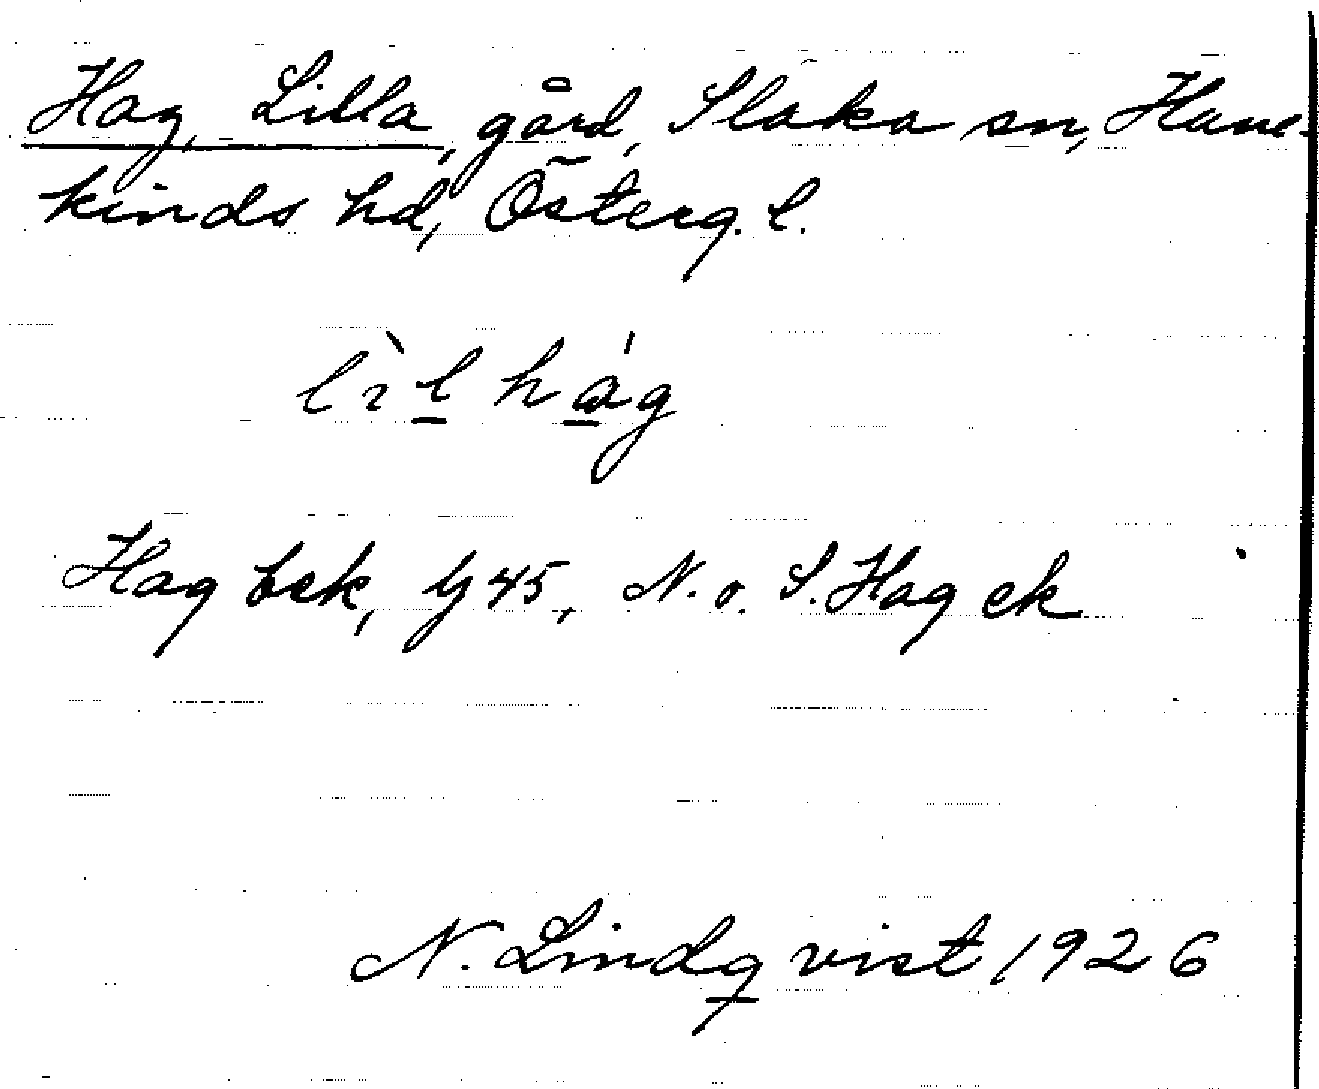 Hag, Lilla, gård, Slaka sn, Hane-
kinds hd, Österg. l.
lìl hág
Hag bek, G 45, N. o. S. Hag ek
N. Lindqvist 1926